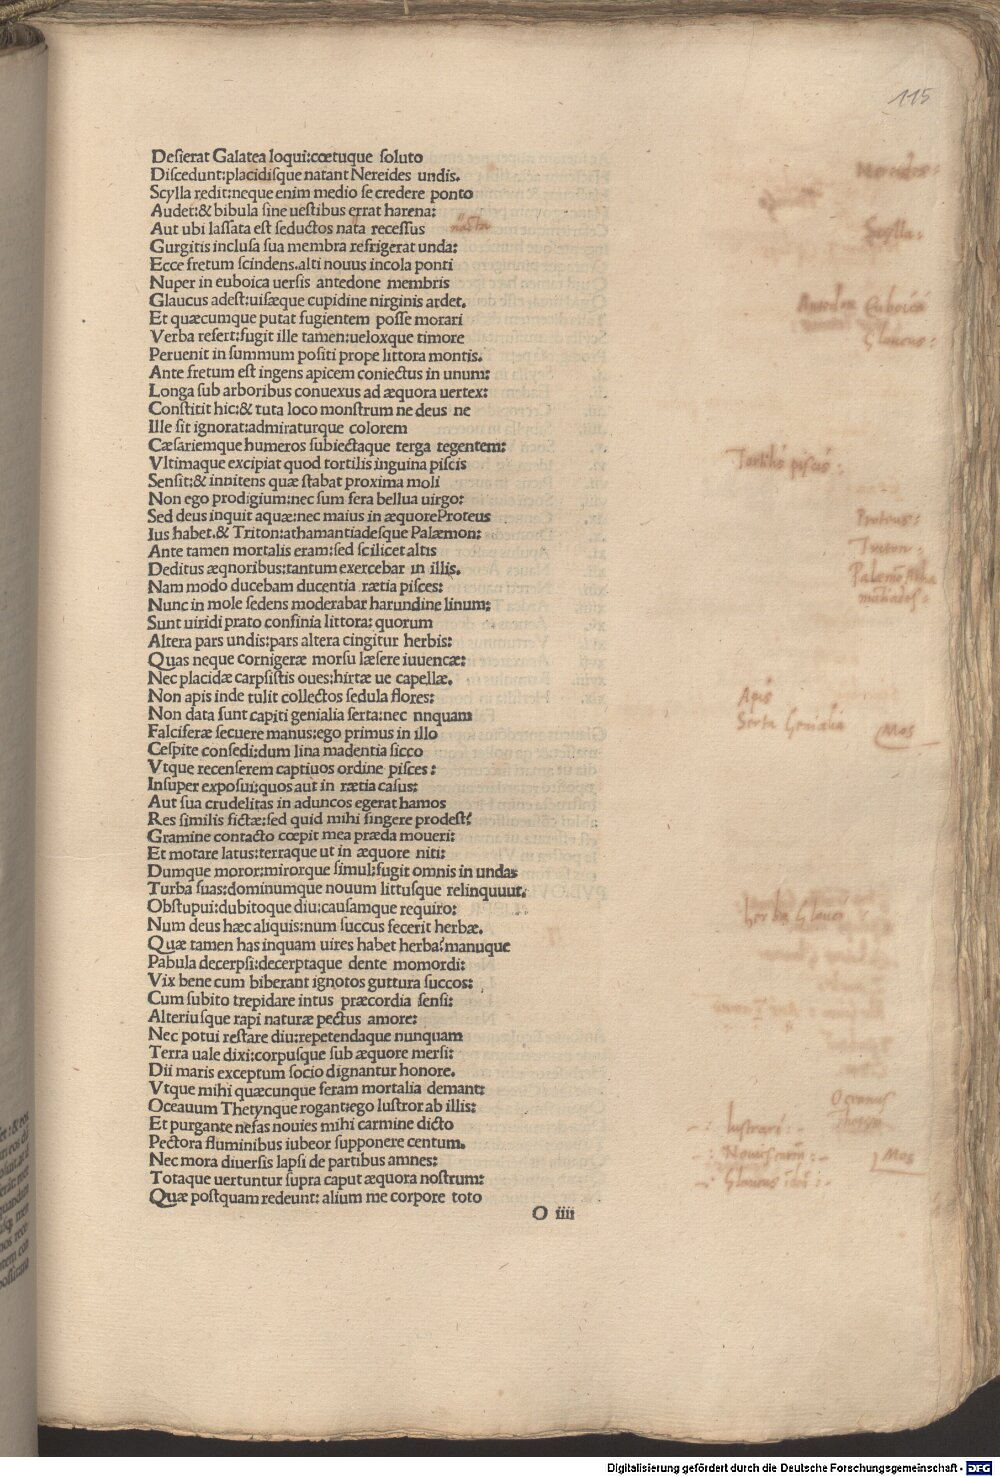 115
Desierat Galatea loqui:cœtuque soluto
Discedunt:placidisque natant Nereides undis.
Scylla redit:neque enim medio se credere ponto
Audet:& bibula sine uestibus errat harena:
Aut ubi lassata est seductos nata recessus
Gurgitis inclusa sua membra refrigerat unda:
Ecce fretum scindens.alti nouus incola ponti
Nuper in euboica uersis antedone membris
Glaucus adest:uisæque cupidine nirginis ardet.
Et quæcumque putat fugientem posse morari
Verba refert:fugit ille tamen:ueloxque timore
Peruenit in summum positi prope littora montis.
Ante fretum est ingens apicem coniectus in unum:
Longa sub arboribus conuexus ad æquora uertex:
Constitit hic:& tuta loco monstrum ne deus ne
Ille sit ignorat:admiraturque colorem
Cæsariemque humeros subiectaque terga tegentem:
Vltimaque excipiat quod tortilis inguina piscis
Sensit:& innitens quæ stabat proxima moli
Non ego prodigium:nec sum fera bellua uirgo:
Sed deus inquit aquæ:nec maius in æquoreProteus
Ius habet.& Triton:athamantiadesque Palæmon:
Ante tamen mortalis eram:sed scilicet altis
Deditus æqnoribus:tantum exercebar in illis.
Nam modo ducebam ducentia rætia pisces:
Nunc in mole sedens moderabar harundine linum:
Sunt uiridi prato confinia littora: quorum
Altera pars undis:pars altera cingitur herbis:
Quas neque cornigeræ morsu læsere iuuencæ:
Nec placidæ carpsistis oues:hirtæ ue capellæ.
Non apis inde tulit collectos sedula flores:
Non data sunt capiti genialia serta:nec nnquam
Falciferæ secuere manus:ego primus in illo
Cespite consedi:dum lina madentia sicco
Vtque recenserem captiuos ordine pisces:
Insuper exposui:quos aut in rætia casus:
Aut sua crudelitas in aduncos egerat hamos
Res similis fictæ:sed quid mihi fingere prodest?
Gramine contacto cœpit mea præda moueri:
Et motare latus:terraque ut in æquore niti:
Dumque moror:mirorque simul:fugit omnis in undas
Turba suas:dominumque nouum littusque relinquuut.
Obstupui:dubitoque diu:causamque requiro:
Num deus hæc aliquis:num succus fecerit herbæ.
Quæ tamen has inquam uires habet herba?manuque
Pabula decerpsi:decerptaque dente momordi:
Vix bene cum biberant ignotos guttura succos:
Cum subito trepidare intus præcordia sensi:
Alteriusque rapi naturæ pectus amore:
Nec potui restare diu:repetendaque nunquam
Terra uale dixi:corpusque sub æquore mersi:
Dii maris exceptum socio dignantur honore.
Vtque mihi quæcunque feram mortalia demant:
Oceauum Thetynque rogant:ego lustror ab illis:
Et purgante nefas nouies mihi carmine dicto
Pectora fluminibus iubeor supponere centum.
Nec mora diuersis lapsi de partibus amnes:
Totaque uertuntur supra caput æquora nostrum:
Quæ postquam redeunt: alium me corpore toto
O iiii
Nereides:
Scylla:
Euboica
Glaucus:
Tortilis piscis:
Proteus:
Triton:
Apis
Serta Genialia
Mos
herba Glauci
Oceanus
lustrari:
Mos
Digitalisierung gefördert durch die Deutsche Forschungsgemeinschaft - DFG